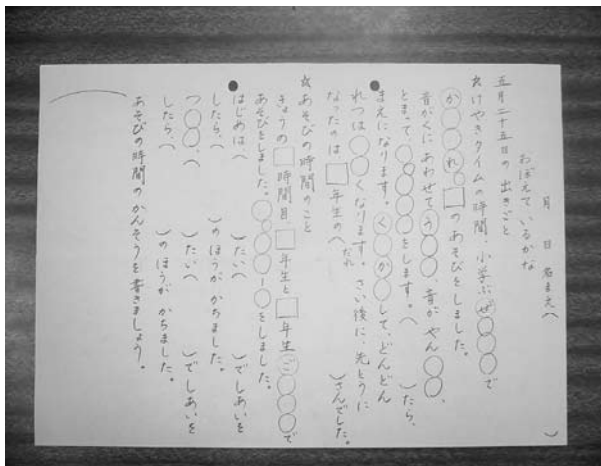 月 日 名まえ( )
おぼえているかな
五月二十五日の出きごと
☆けやきタイムの時間、小学ぶぜ○○○で
か○○れ○□のあそびをしました。
音がくにあわせてう○○○、音がやん○○、
とまって○○○○○をします。( )たら、
まえになります。く○か○して、どんどん
れつは○○くなります。さい後に、先とうに
なったのは□年生の( )さんでした。
だれ
☆あそびの時間のこと
きょうの□時間目、□年生と□年生ご○○○で
あそびをしました。○○○ー○をしました。
はじめは( )たい( )でしあいを
したら、( )のほうがかちました。
つ○○、( )たい( )でしあいを
したら、( )のほうが かちました。
あそびの時間のかんそうを書きましょう。